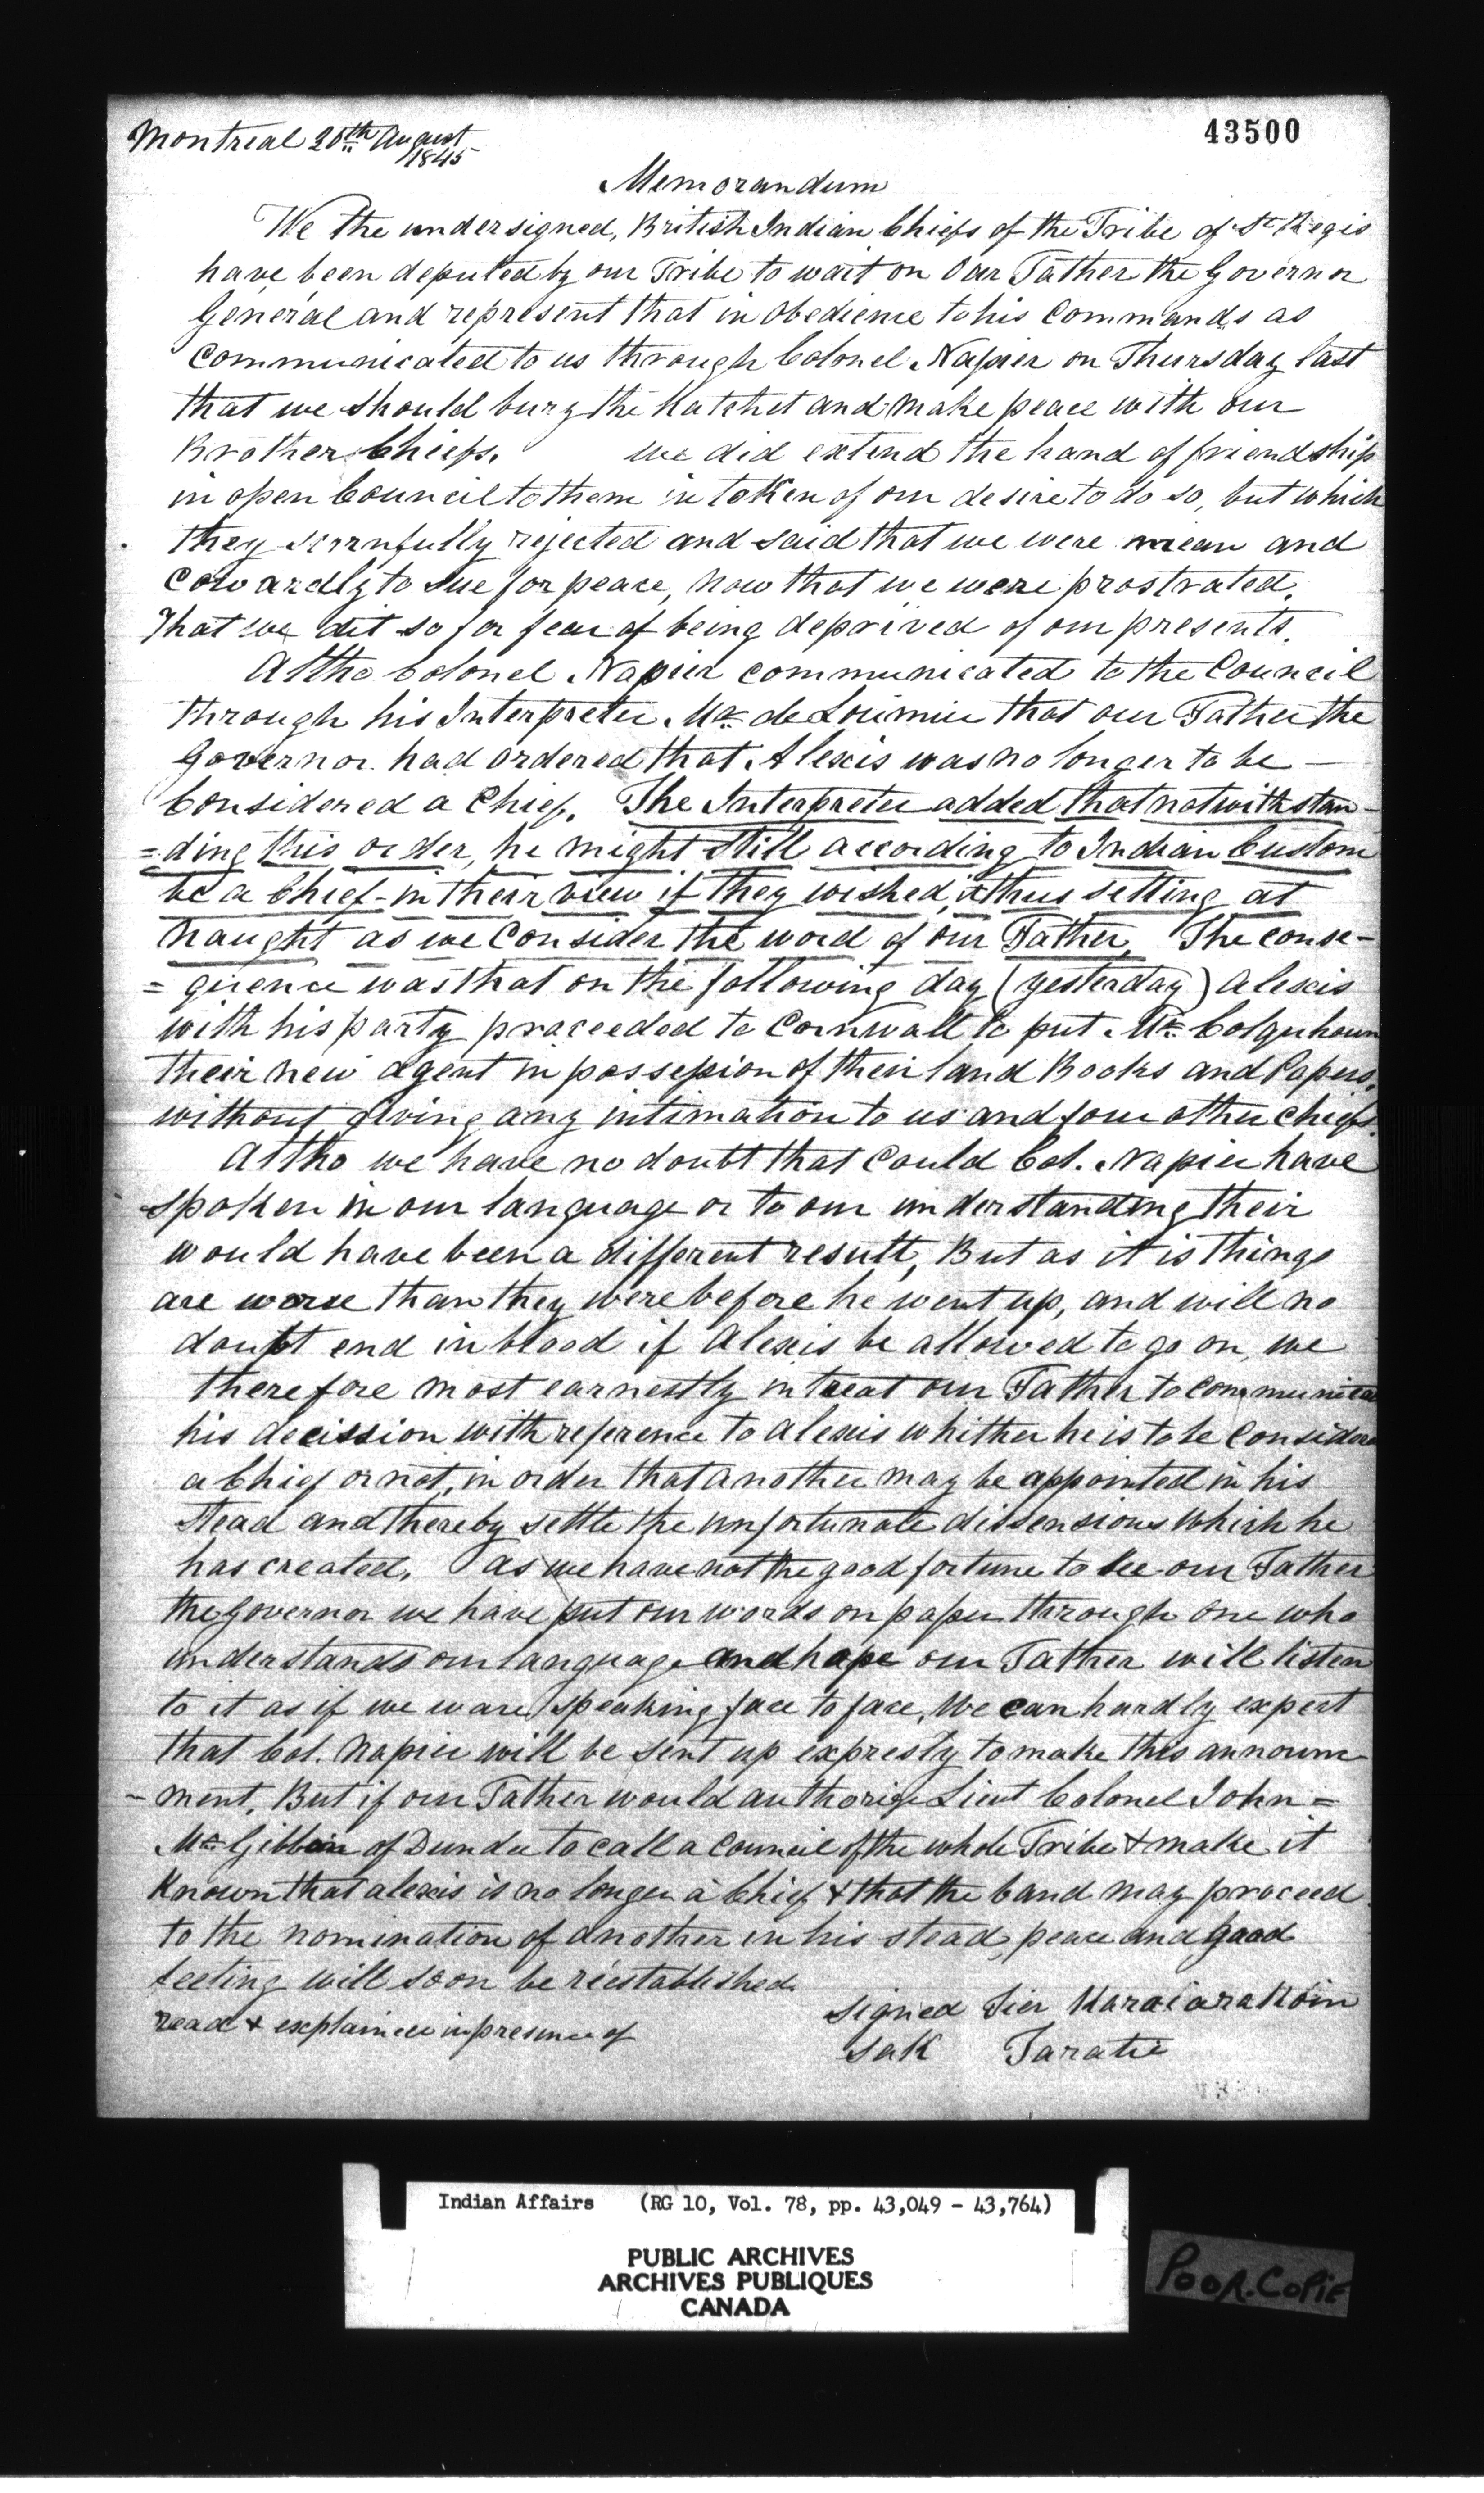 Montreal 20th August
1845
43500
Memorandum
We the undersigned, British Indian Chiefs of the Tribe of St Regis
have been deputed by our Tribe to wait on Our Father the Governor
General and represent that in obedience to his Commands as
Communicated to us through Colonel Napier on Thursday last
that we should bury the Hatchet and make peace with our
Brother Chiefs. we did extend the hand of friendship
in open Council to them in token of our desire to do so, but which
they scornfully rejected and said that we were mean and
Cowardly to sue for peace, now that we were prostrated.
That we dit so for fear of being deprived of our presents.
Altho Colonel Napier communicated to the Council
through his Interpreter Mr. de Lorimier that our Father the
Governor had ordered that Alexis was no longer to be
Considered a Chief. The Interpreter added that notwithstan-
=ding this order, he might still according to Indian Custom
be a Chief-in their view if they wished, thus setting at
naught as we Consider the word of our Father. The conse-
=quence was that on the following day (yesterday) Alexis
with his party proceeded to Cornwall to put Mr. Colquhoun
their new agent in possession of their land Books and Papers.
without giving any intimation to us and four other Chiefs.
Altho we have no doubt that Could Col. Napier have
spoken in our language or to our understanding their
would have been a different result, But as it is things
are worse than they were before he went up, and will no
doubt end in blood if Alexis be allowed to go on, we
therefore most earnestly intreat our Father to communicate
his decission with reference to Alexis whither he is to be Considered
a Chief or not, in order that another may be appointed in his
Stead and thereby settle the unfortunate dissensions which he
has created. as we have not the good fortune to see our Father
the Governor we have put our words on paper through one who
understands our language and hope our Father will listen
to it as if we ware speaking face to face, We can hardly expect
that Col. Napier will be sent up expresly to make this announce-
-ment, But if our Father would authorize Lieut Colonel John=
Mc Gibbon of Dundee to call a Council of the whole Tribe & make it
Known that alexis is no longer a Chief & that the band may proceed
to the nomination of another in his stead, peace and good
feeling will soon be reestablished
read & explained in presence of
signed Sier Karaiarakoin
Sak Taratie
Indian Affairs (RG 10, Vol. 78, pp. 43,049 - 43,764)
PUBLIC ARCHIVES
ARCHIVES PUBLIQUES
CANADA
POOR. COPIE